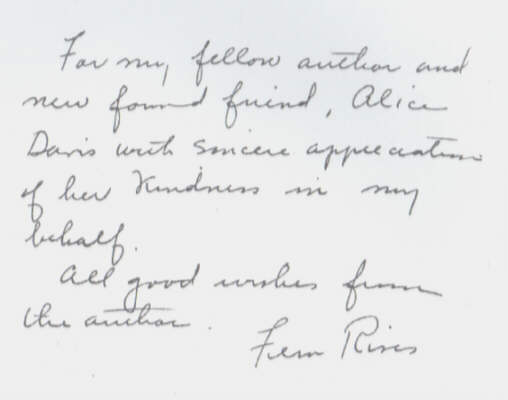 For my fellow author and
new found friend, Alice
Davis with sincere appreciation
of her kindness in my
behalf.
All good wishes from
the author.
Fern Rives